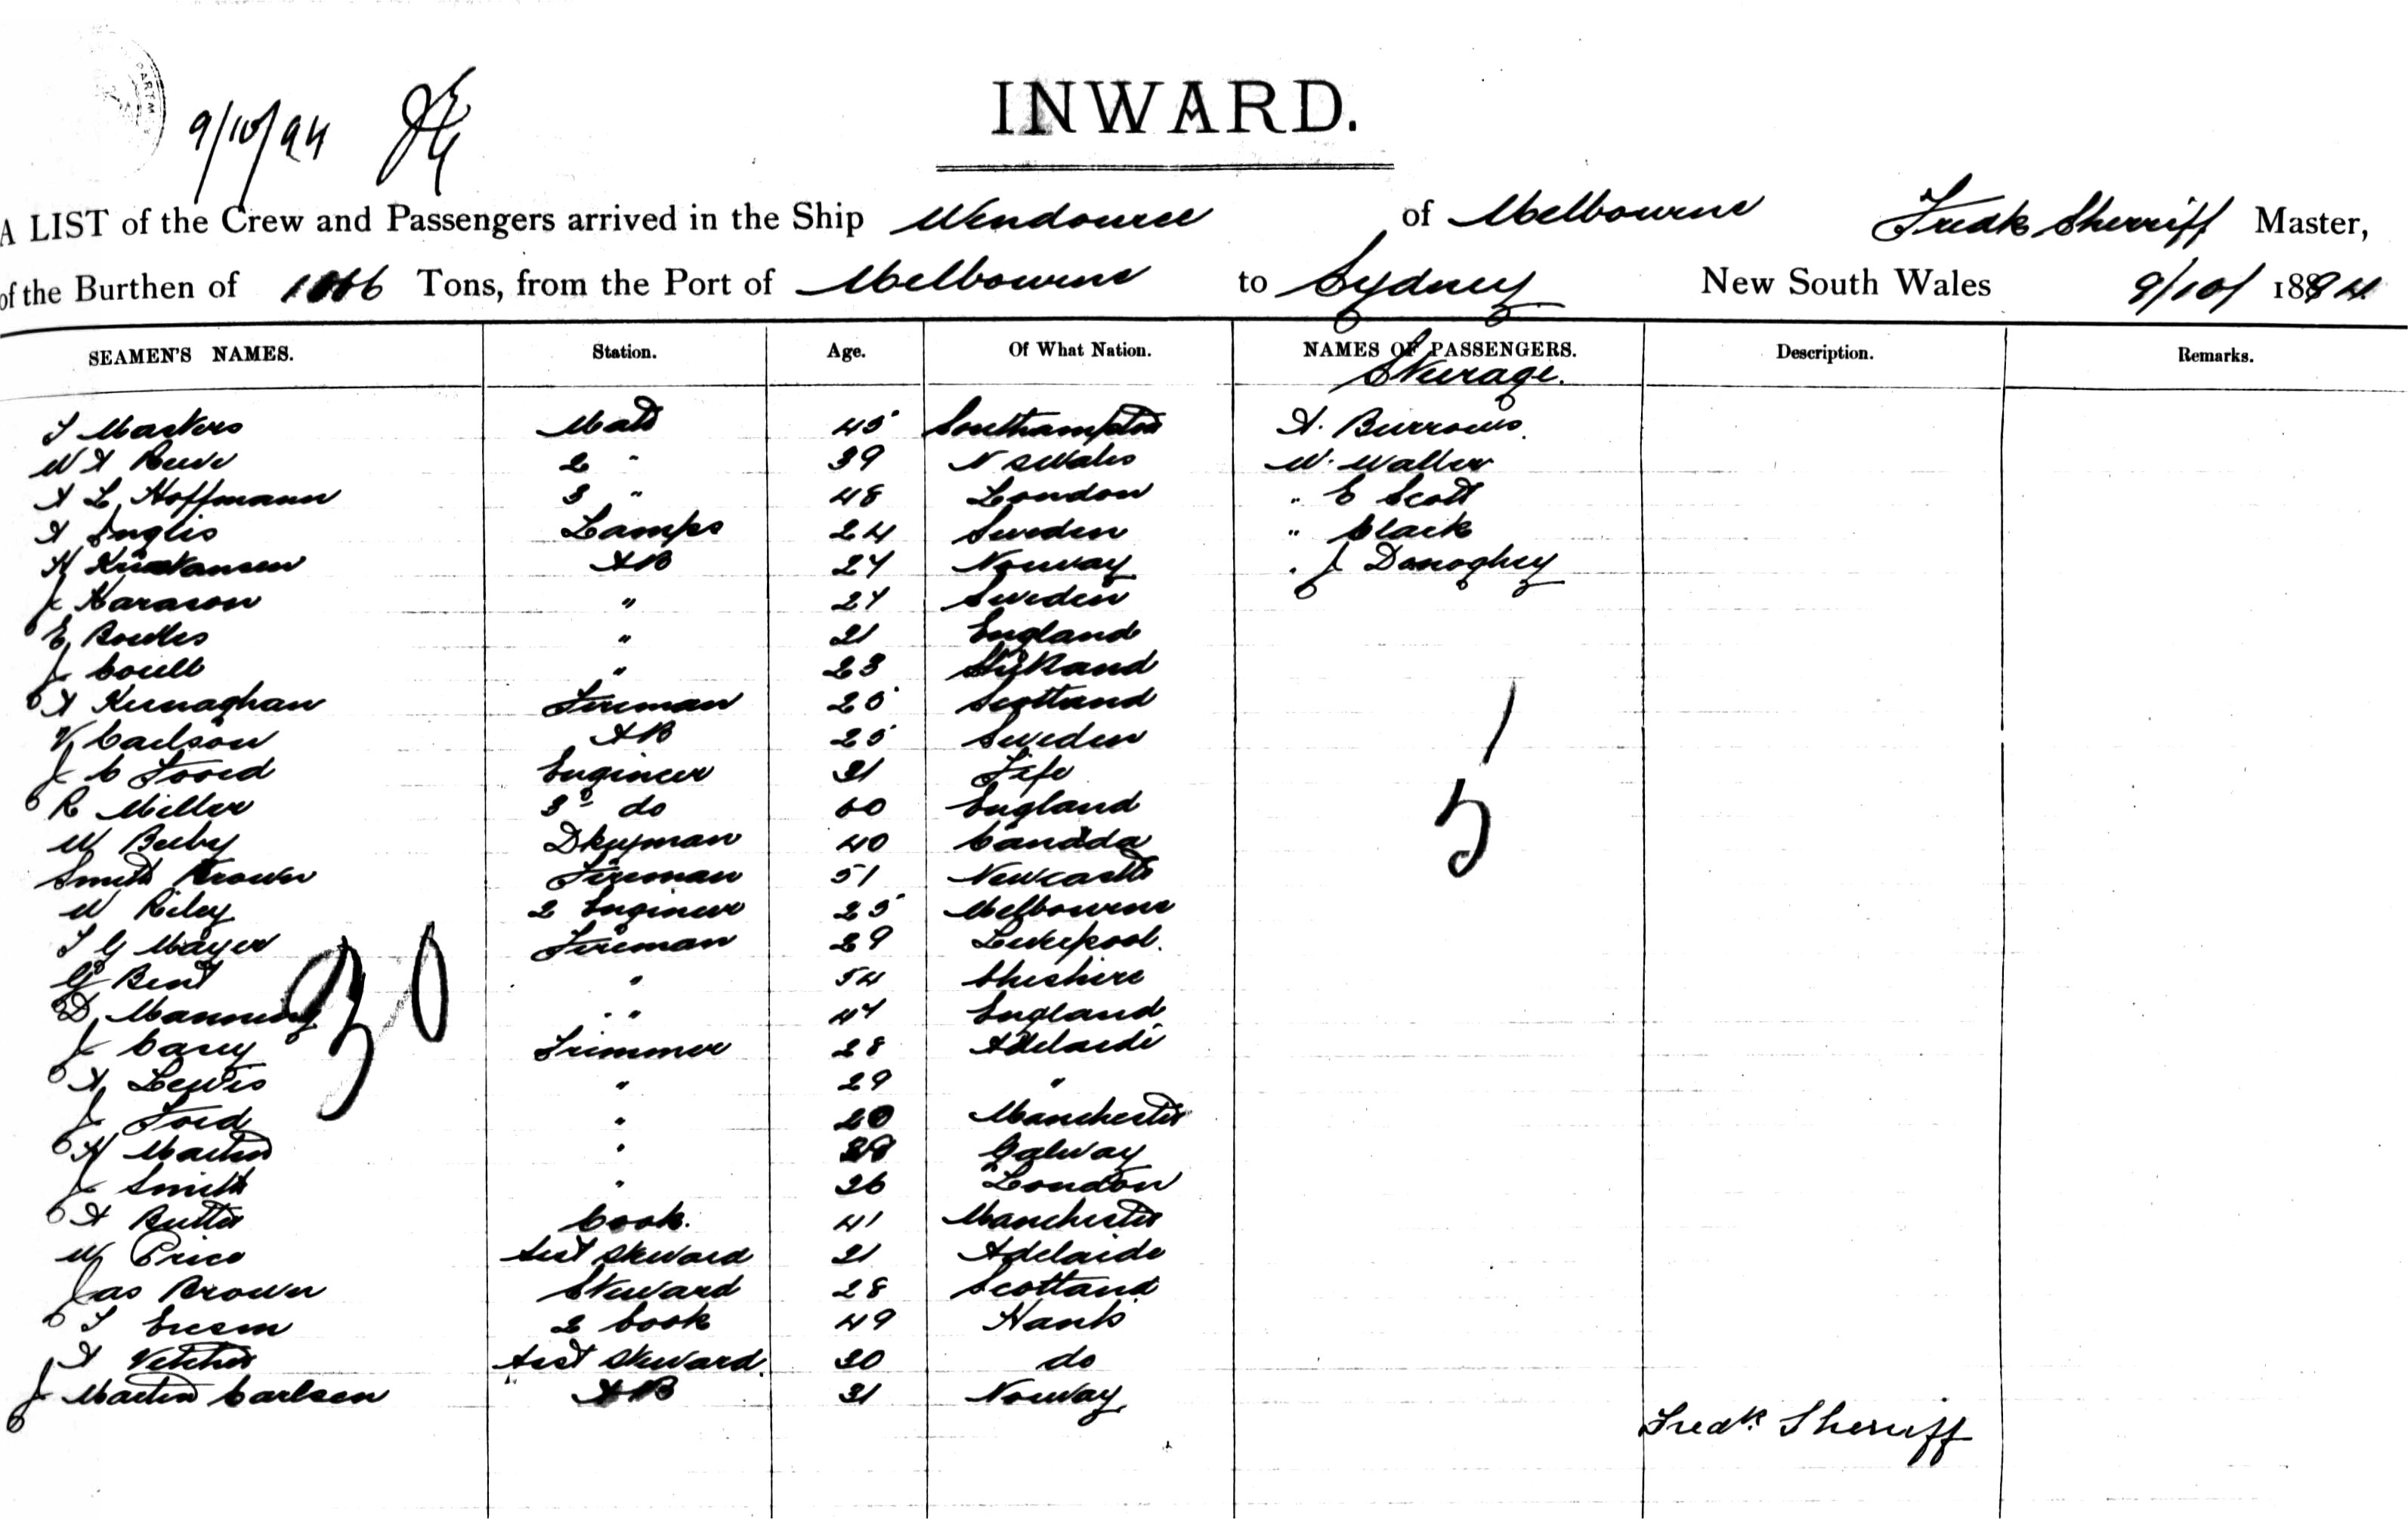 PARTM
9/10/94
INWARD.
A LIST of the Crew and Passengers arrived in the Ship Wendouree of Melbourne Fredk Sherriff Master,
of the Burthen of Tons, from the Port of Melbourne to Sydney New South Wales 9/10/ 1894
SEAMEN'S NAMES. Station. Age. Of What Nation. NAMES OF PASSENGERS. Description. Remarks.
Steerage.
T Masters Mate 45 Southampton A. Burrows
W A 2 " 39 N S Wales W. Waller
A L Hoffmann 3 " 48 London " E Scott
A Inglis Lamps 24 Sweden " Clack
H AB 27 Norway " J Donoghey
J Harason " 27 Sweden
E Bowles " 21 England
J Coull " 23
A Kernaghan Fireman 25 Scotland
V Carlson AB 25 Sweden
J C Foord Engineer 31 Fife
R Miller 3 do 60 England
W Beeby Dkeyman 40 Canada
Smith Brown Fireman 51 Newcastle
W Riley 2 Engineer 25 Melbourne
T G Mayer Fireman 29 Liverpool.
G Bent " 54 Cheshire
D Manning " " 47 England
J Carey Trimmer 28 Adelaide
A Lewis " 29 "
J Ford " 20 Manchester
H Martin " Galway
J Smith " 26 London
A Butter Cook. 41 Manchester
W Price Asst Steward 21 Adelaide
Jas Brown Steward 28 Scotland
T 2 Cook 49 Hants
A Vetcher Asst Steward. 30 do
J Martin Carlsen AB 31 Norway
30
5
Fredk. Sherriff